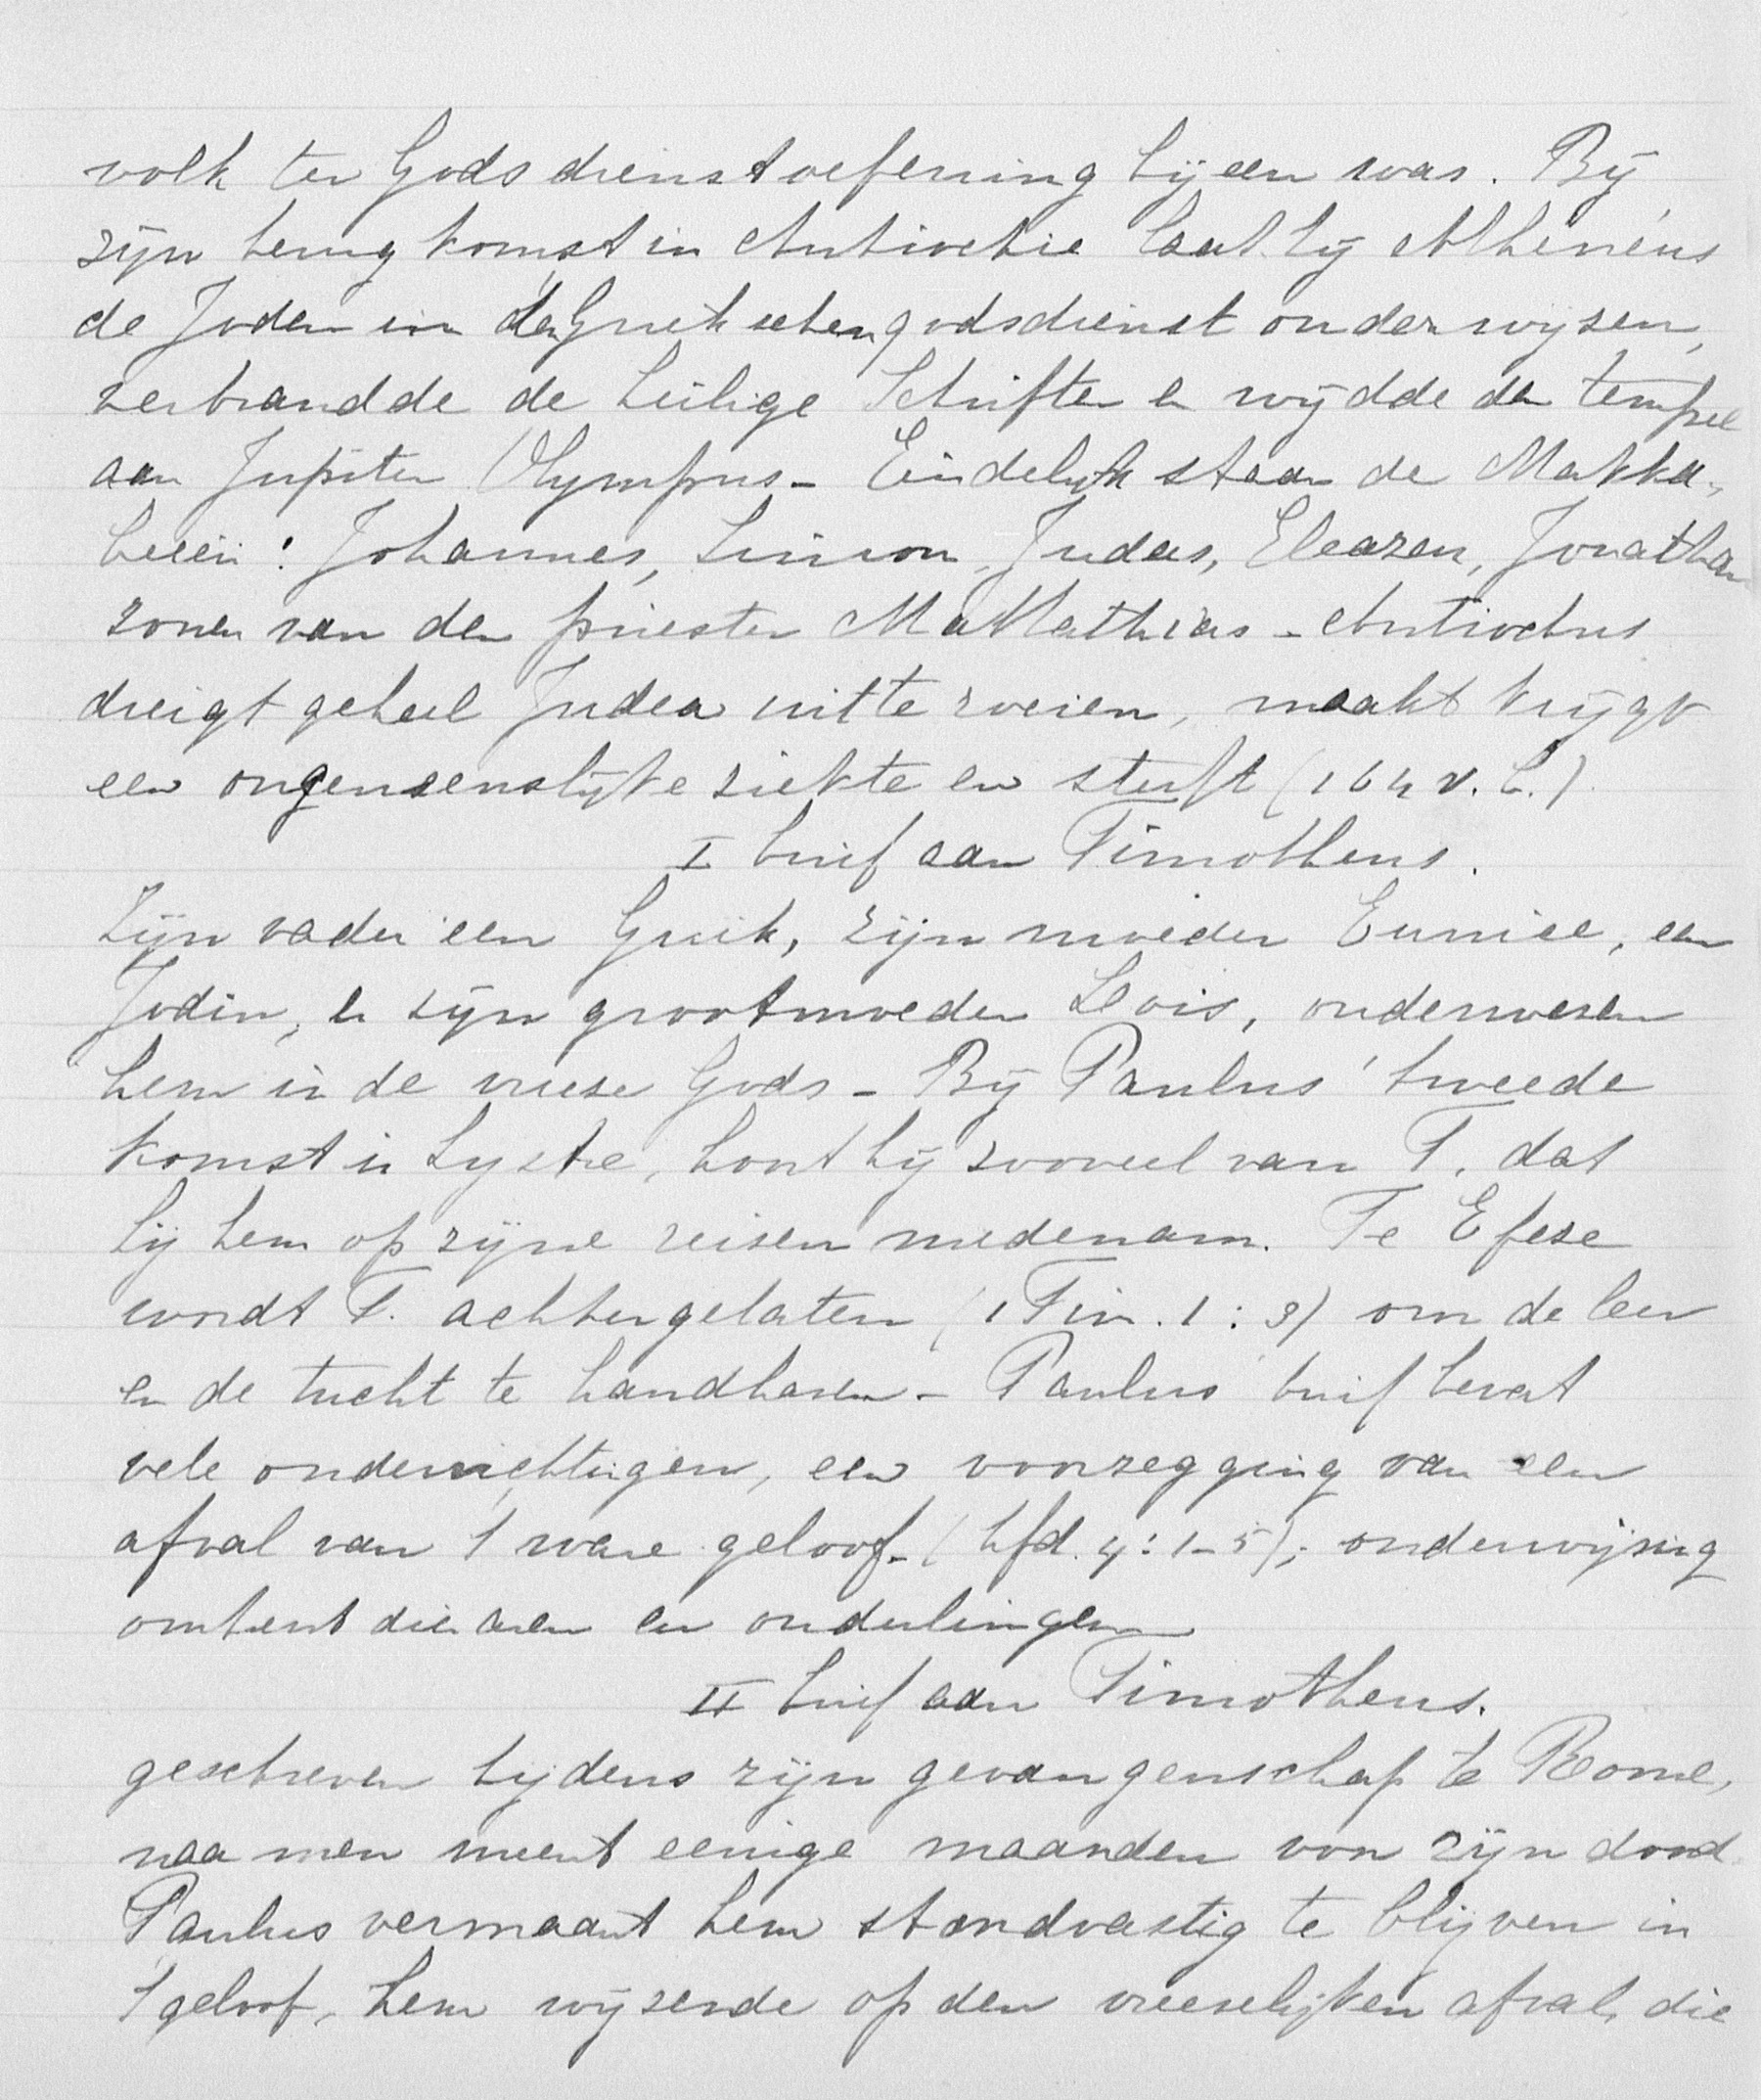 volk ter Godsdienstoefening bijeen was. Bij
zijn terugkomst in Antiochie laat hij Athineüs
de Joden in den Griekschen godsdienst onderwijzen,
verbrandde de heilige Schriften en wijdde den tempel
aan Jupiter Olympus - Eindelijk staan de Makka-
beeën: Johannes, Simon, Judas, Eleazer, Jonathan
zonen van den priester Mattathias - Antiochus
dreigt geheel Judea uit te roeien, maakt krijgt
een ongeneenslijke ziekte en sterft (164 v. C.)
I brief aan Timotheus.
Zijn vader een Griek, zijn moeder Eunice, een
Jodin, en zijn grootmoeder Loïs, onderwezen
hem in de vreeze Gods - Bij Paulus' tweede
komst in Lystre, hont hij zooveel van T. dat
hij hem op zijne reizen medenam. Te Efeze
wordt T. achtergelaten (1 Tim. 1:3) om de leer
en de tucht te handhaven - Paulus' brief bevat
vele onderrichtingen, een voorzegging van een
afval van 't ware geloof - (hfd. 4:1-5); onderwijzing
omtrent diakenen en ouderlingen
II brief aan Timotheus.
geschreven tijdens zijn gevangenschap te Rome,
naar men meent eenige maanden voor zijn dood
Paulus vermaant hem standvastig te blijven in
't geloof, hem wijzende op den vreeselijken afval, die